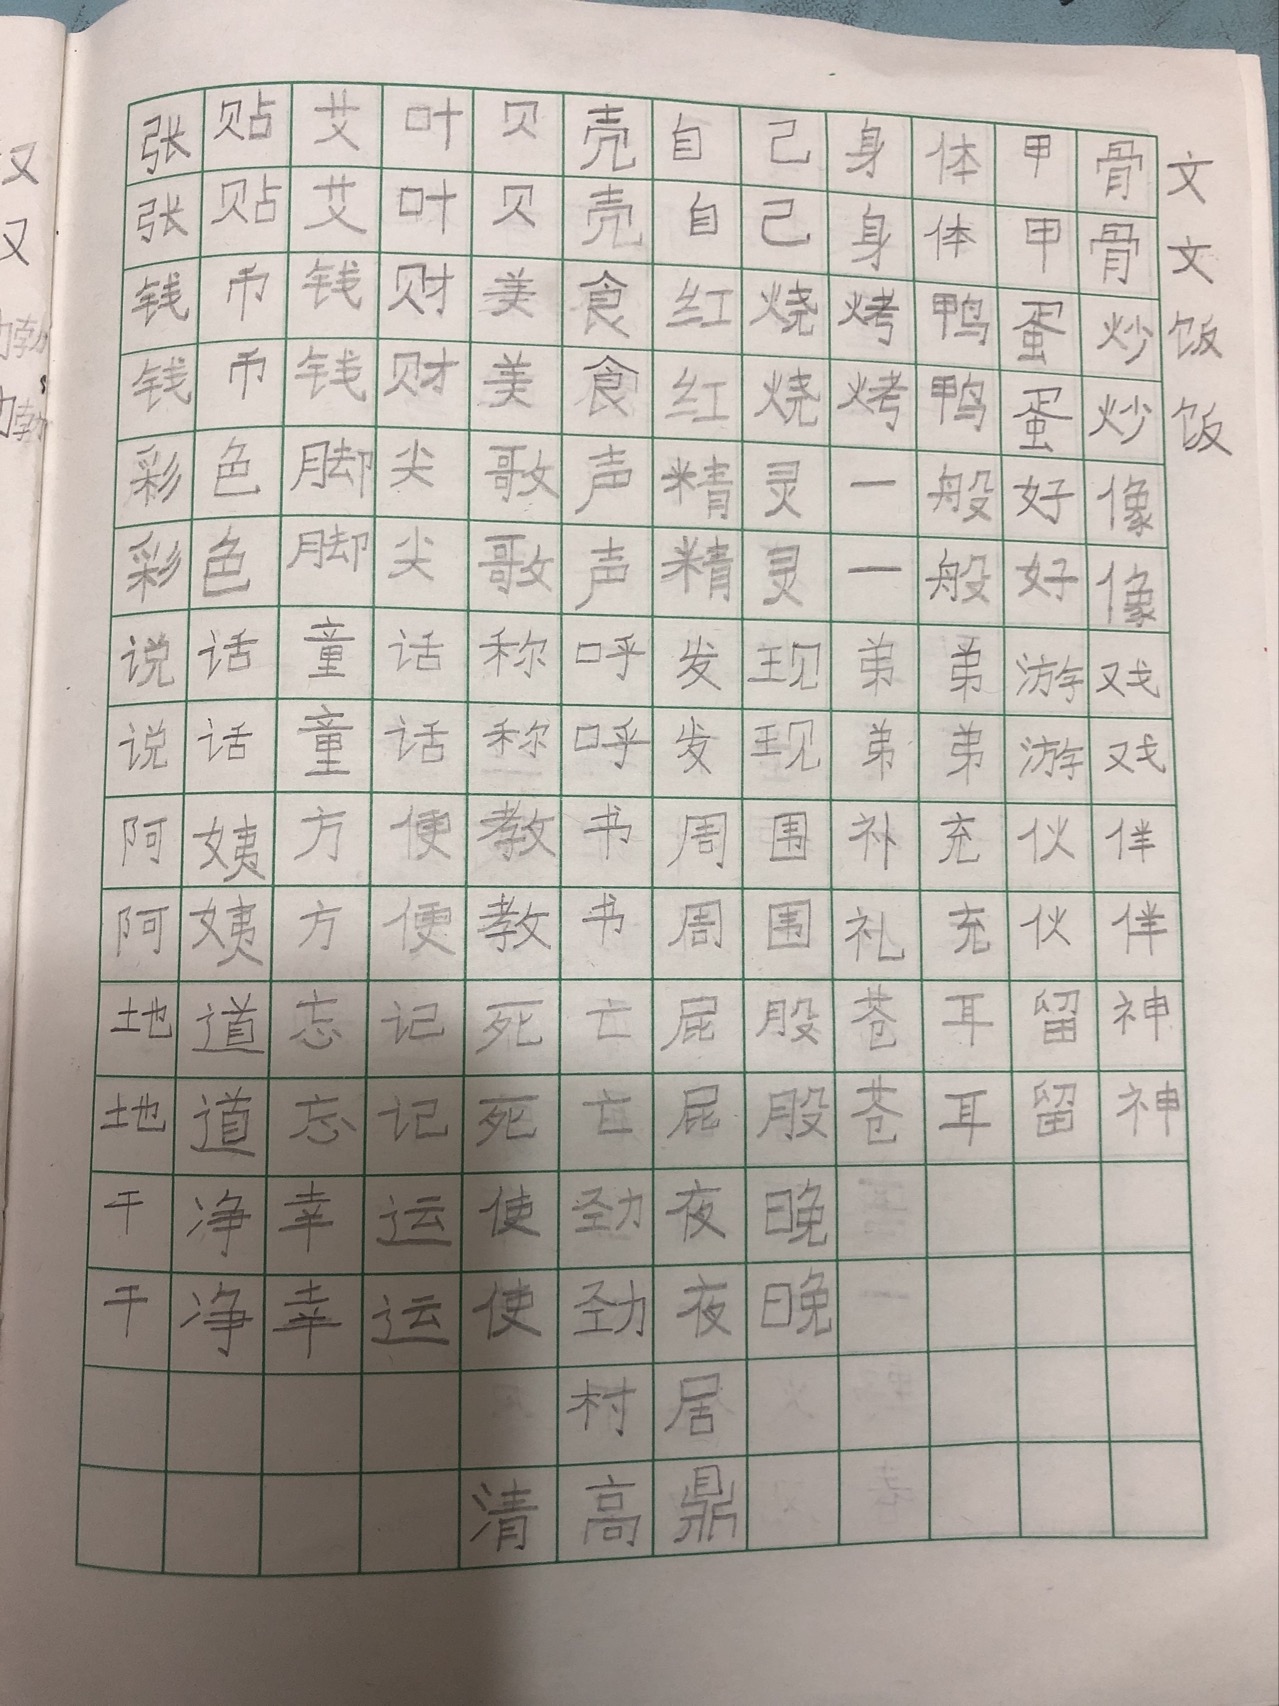 张贴艾叶贝壳自己身体甲骨文
张贴艾叶贝壳自己身体甲骨文
钱币钱财美食红烧烤鸭蛋炒饭
钱币钱财美食红烧烤鸭蛋炒饭
彩色脚尖歌声精灵一般好像
彩色脚尖歌声精灵一般好像
说话童话称呼发现弟弟游戏
说话童话称呼发现弟弟游戏
阿姨方便教书周围补充伙伴
阿姨方便教书周围礼充伙伴
地道忘记死亡屁股苍耳留神
地道忘记死亡屁股苍耳留神
干净幸运使劲夜晚
干净幸运使劲夜晚
村居
清高鼎
汉
汉
勃勃
勃勃